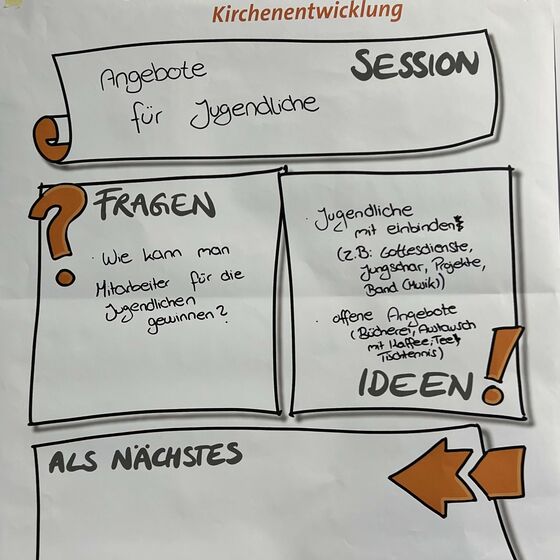 Kirchenentwicklung
SESSION
Angebote
für Jugendliche
FRAGEN
· Wie kann man
Mitarbeiter für die
Jugendlichen
gewinnen?
· Jugendliche
mit einbinden
(z.B: Gottesdienste,
Jungschar, Projekte,
Band (Musik))
· offene Angebote
(Bücherei, Austausch
mit Kaffee, Tee,
Tischtennis)
IDEEN
ALS NÄCHSTES